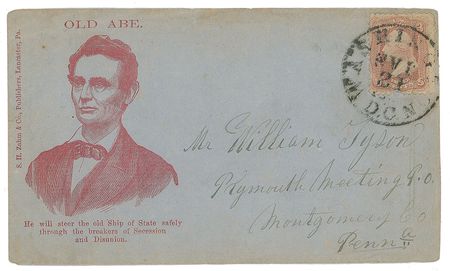 OLD ABE.
S. H. Zahm & Co., Publishers, Lancaster, Pa.
He will steer the old Ship of State safely
through the breakers of Secession
and Disunion.
D.C.
Mr William Tyson
Plymouth Meeting P.O.
Montgomery Co
Penna